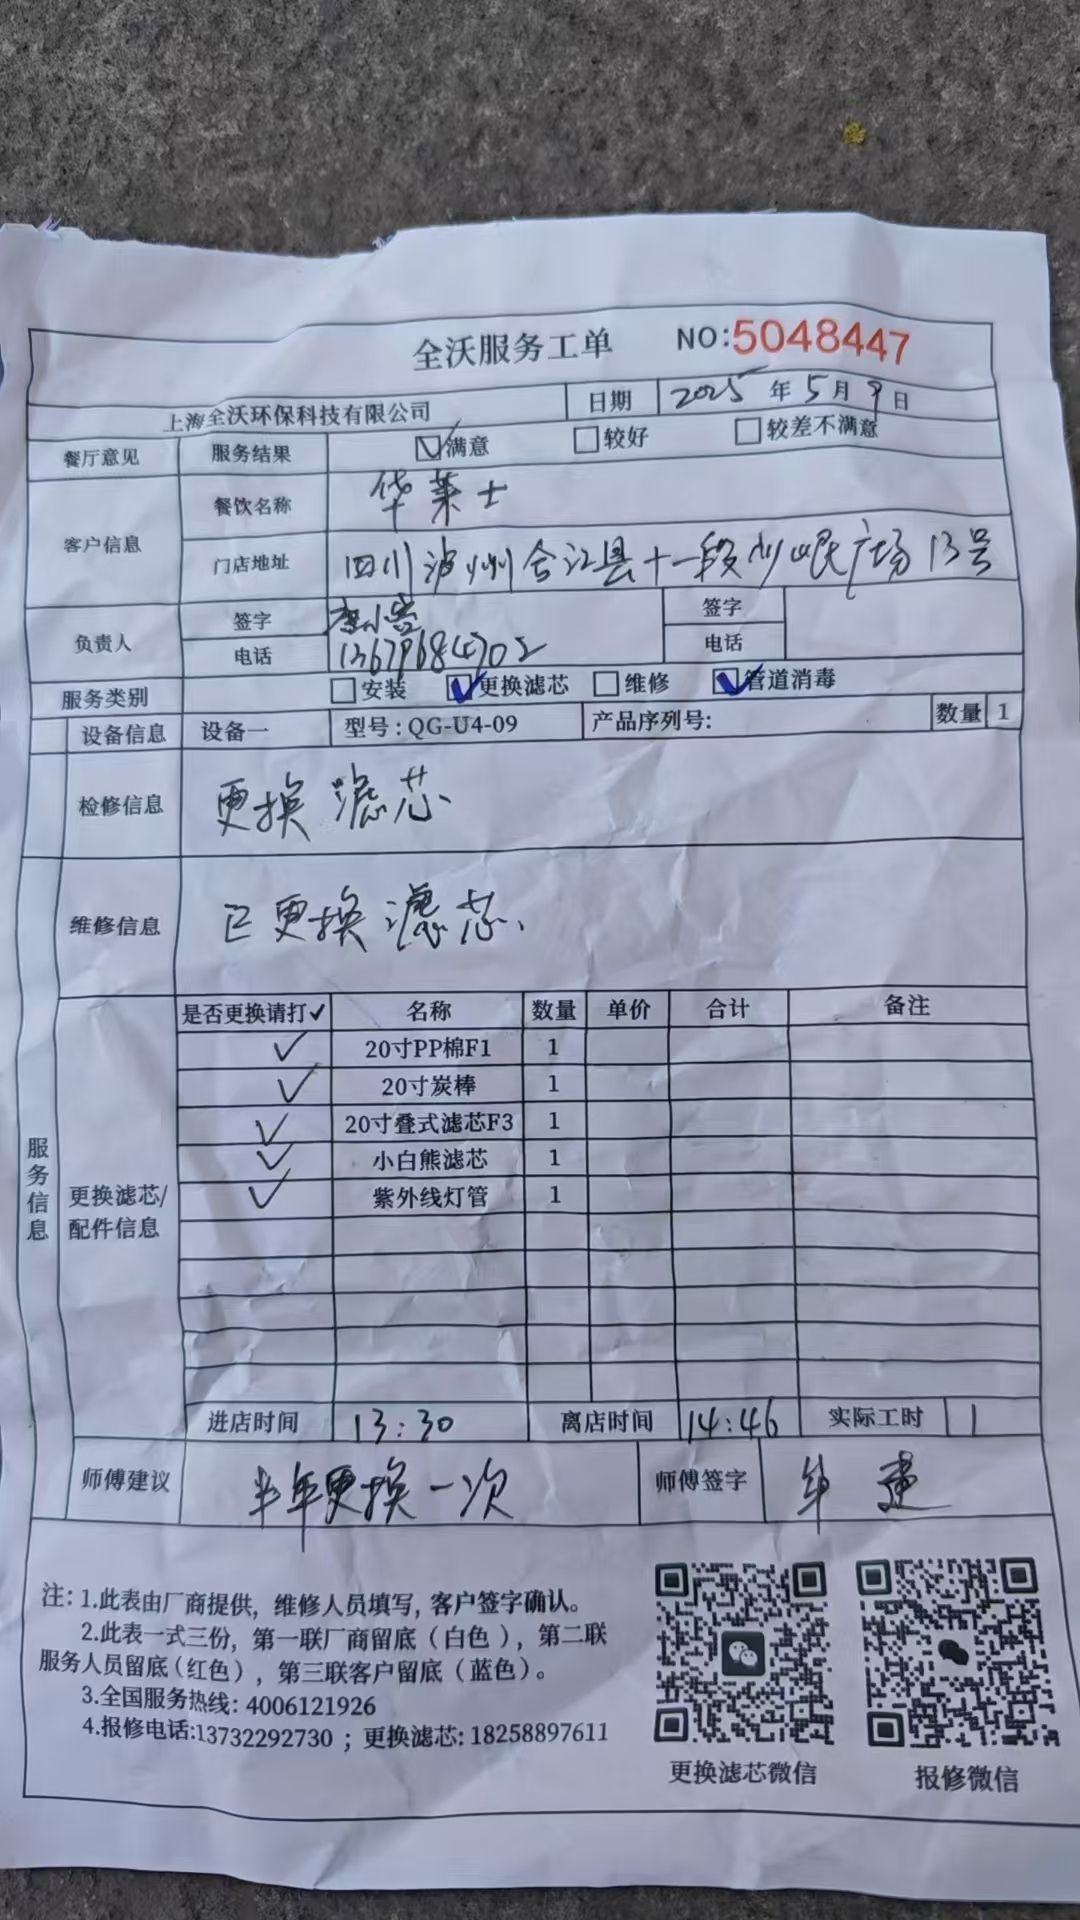 全沃服务工单 NO:5048447
上海全沃环保科技有限公司 日期 2025年5月9日
餐厅意见 服务结果 ☑满意 □较好 □较差不满意
客户信息 餐饮名称 华莱士
门店地址 四川泸州合江县十一段少岷广场13号
负责人 签字 签字
电话 13679684702 电话
服务类别 □安装 ☑更换滤芯 □维修 ☑管道消毒
设备信息 设备一 型号：QG-U4-09 产品序列号: 数量 1
检修信息 更换滤芯、
维修信息 已更换滤芯、
服务信息
更换滤芯/配件信息
是否更换请打✓ 名称 数量 单价 合计 备注
✓ 20寸PP棉F1 1
✓ 20寸炭棒 1
✓ 20寸叠式滤芯F3 1
✓ 小白熊滤芯 1
✓ 紫外线灯管 1
进店时间 13:30 离店时间 14:46 实际工时 1
师傅建议 半年更换一次 师傅签字 建
注：1.此表由厂商提供，维修人员填写，客户签字确认。
2.此表一式三份，第一联厂商留底（白色），第二联
服务人员留底（红色），第三联客户留底（蓝色）。
3.全国服务热线：4006121926
4.报修电话:13732292730；更换滤芯: 18258897611
更换滤芯微信 报修微信